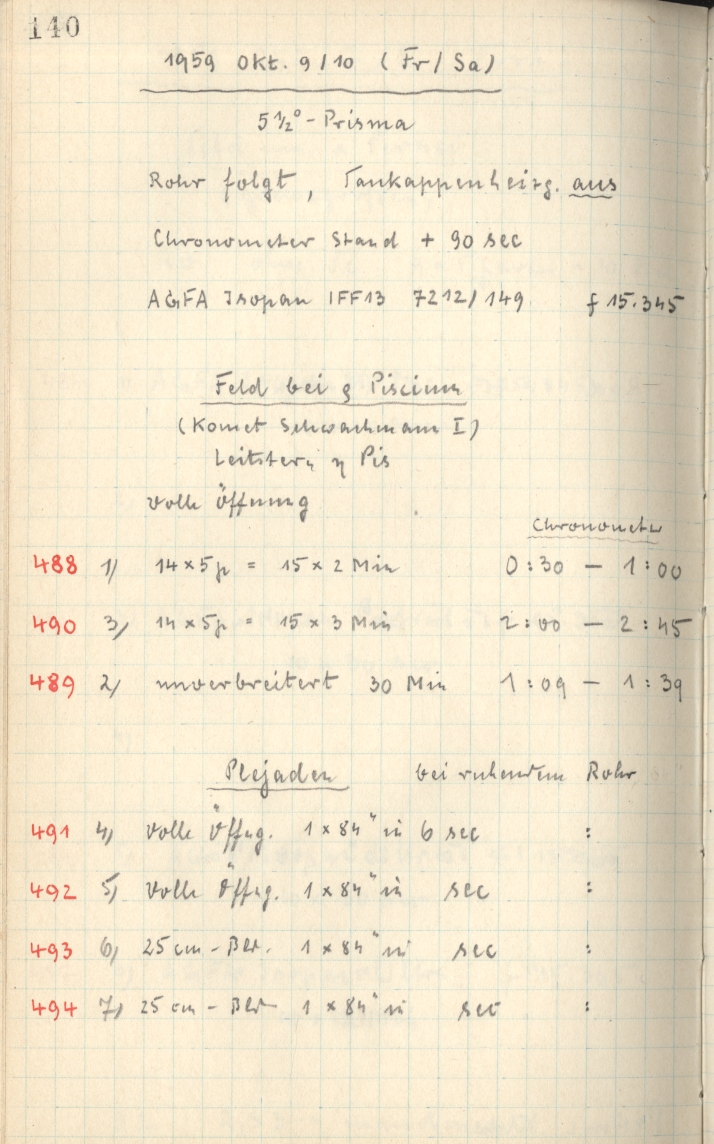 140
1959 Okt. 9/10 (Fr/Sa)
5 1/2° - Prisma
Rohr folgt, Taukappenheizg. aus
Chronometer Stand + 90 sec
AGFA Isopan IFF13 7212/149 f 15.345
Feld bei ϱ Piscium
(Komet Schwachmann I)
Leitstern η Pis
volle Öffnung
Chronometer
488 1) 14 × 5p = 15 × 2 Min 0:30 — 1:00
490 3) 14 × 5p = 15 × 3 Min 2:00 — 2:45
489 2) unverbreitert 30 Min 1:09 — 1:39
Plejaden bei ruhendem Rohr
491 4) volle Öffng. 1 × 84" in 6 sec :
492 5) volle Öffng. 1 × 84" in sec :
493 6) 25 cm - Bld. 1 × 84" in sec :
494 7) 25 cm - Bld 1 × 84" in sec :